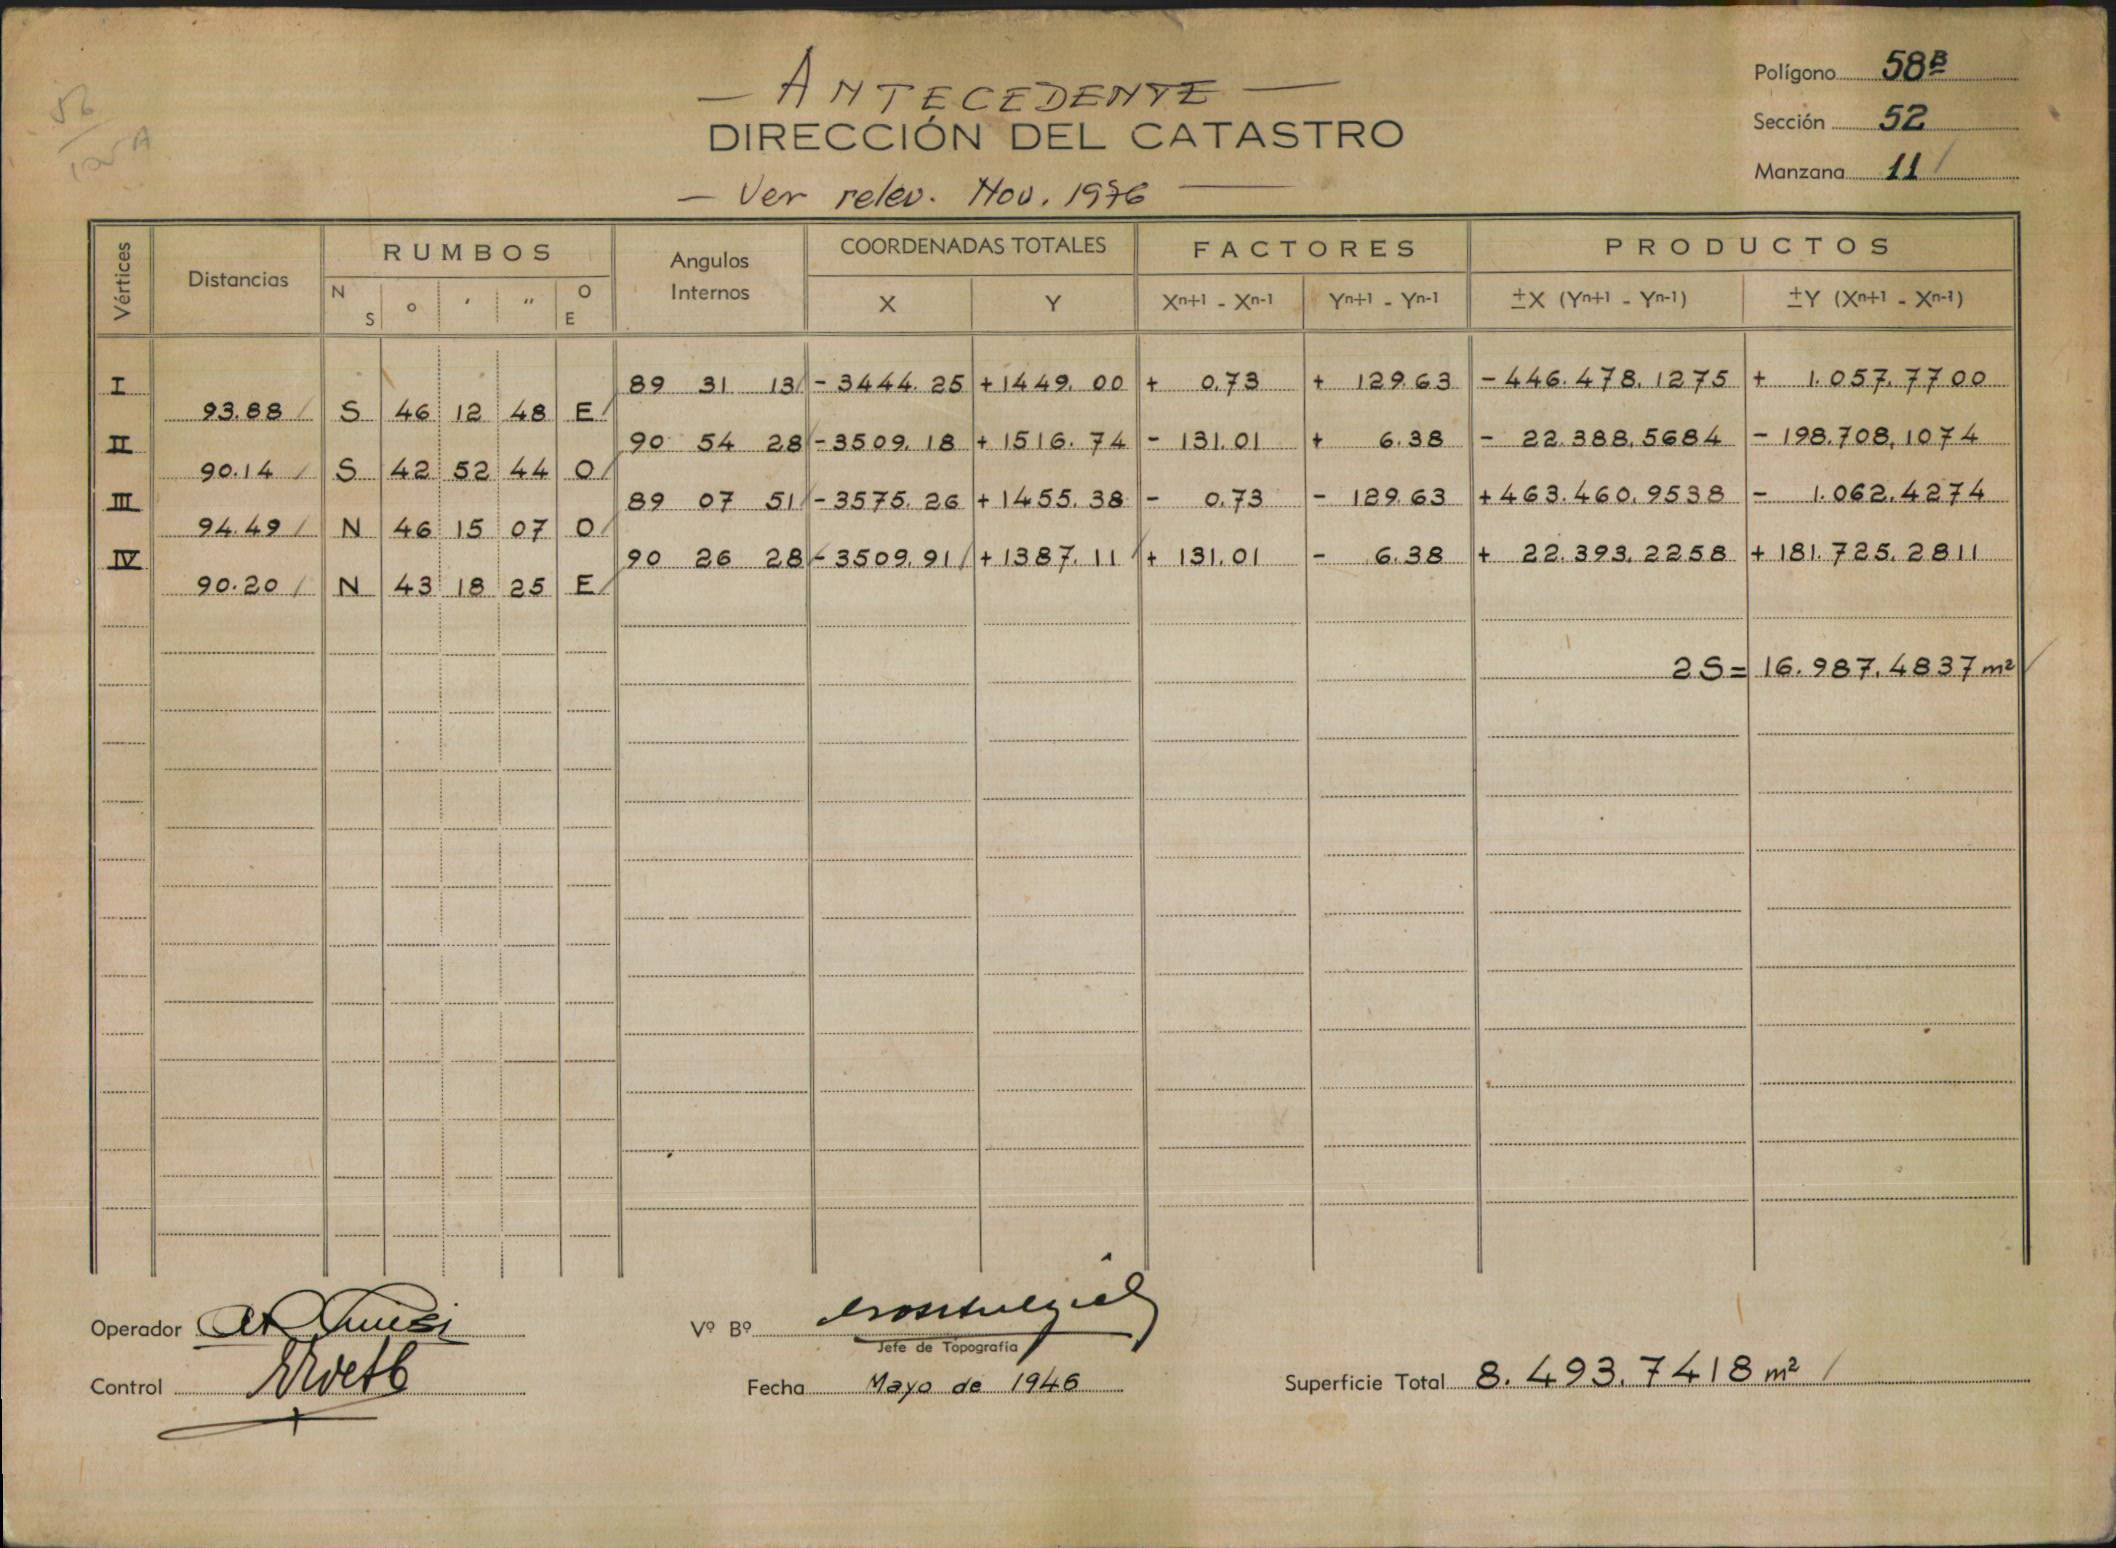 — ANTECEDENTE —
DIRECCIÓN DEL CATASTRO
— Ver relev. Nov. 1976 —
Polígono 58B
Sección 52
Manzana 11 /
Vértices Distancias RUMBOS Angulos Internos COORDENADAS TOTALES FACTORES PRODUCTOS
N S ° ' " O E X Y Xn+1 - Xn-1 Yn+1 - Yn-1 ±X (Yn+1 - Yn-1) ±Y (Xn+1 - Xn-1)
I 89 31 13 - 3444.25 + 1449.00 + 0,73 + 129.63 - 446.478,1275 + 1.057,7700
93.88 / S 46 12 48 E /
II 90 54 28 - 3509.18 + 1516.74 - 131.01 + 6.38 - 22.388,5684 - 198.708,1074
90.14 / S 42 52 44 O /
III 89 07 51 - 3575.26 + 1455.38 - 0.73 - 129.63 + 463.460,9538 - 1.062.4274
94.49 / N 46 15 07 O /
IV 90 26 28 - 3509.91 / + 1387.11 / + 131.01 - 6.38 + 22.393,2258 + 181.725.2811
90.20 / N 43 18 25 E /
2S = 16.987.4837 m² /
Operador
Vº Bº
Jefe de Topografía
Control
Fecha Mayo de 1946
Superficie Total 8.493.7418 m² /